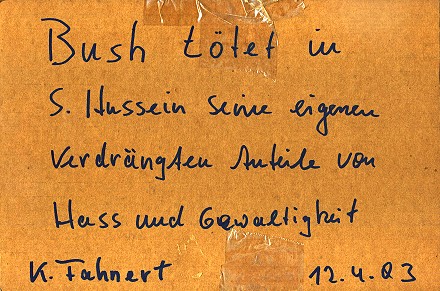 Bush tötet in
S. Hussein seine eigenen
verdrängten Anteile von
Hass und Gewaltigkeit
K. Fahnert 12.4.03